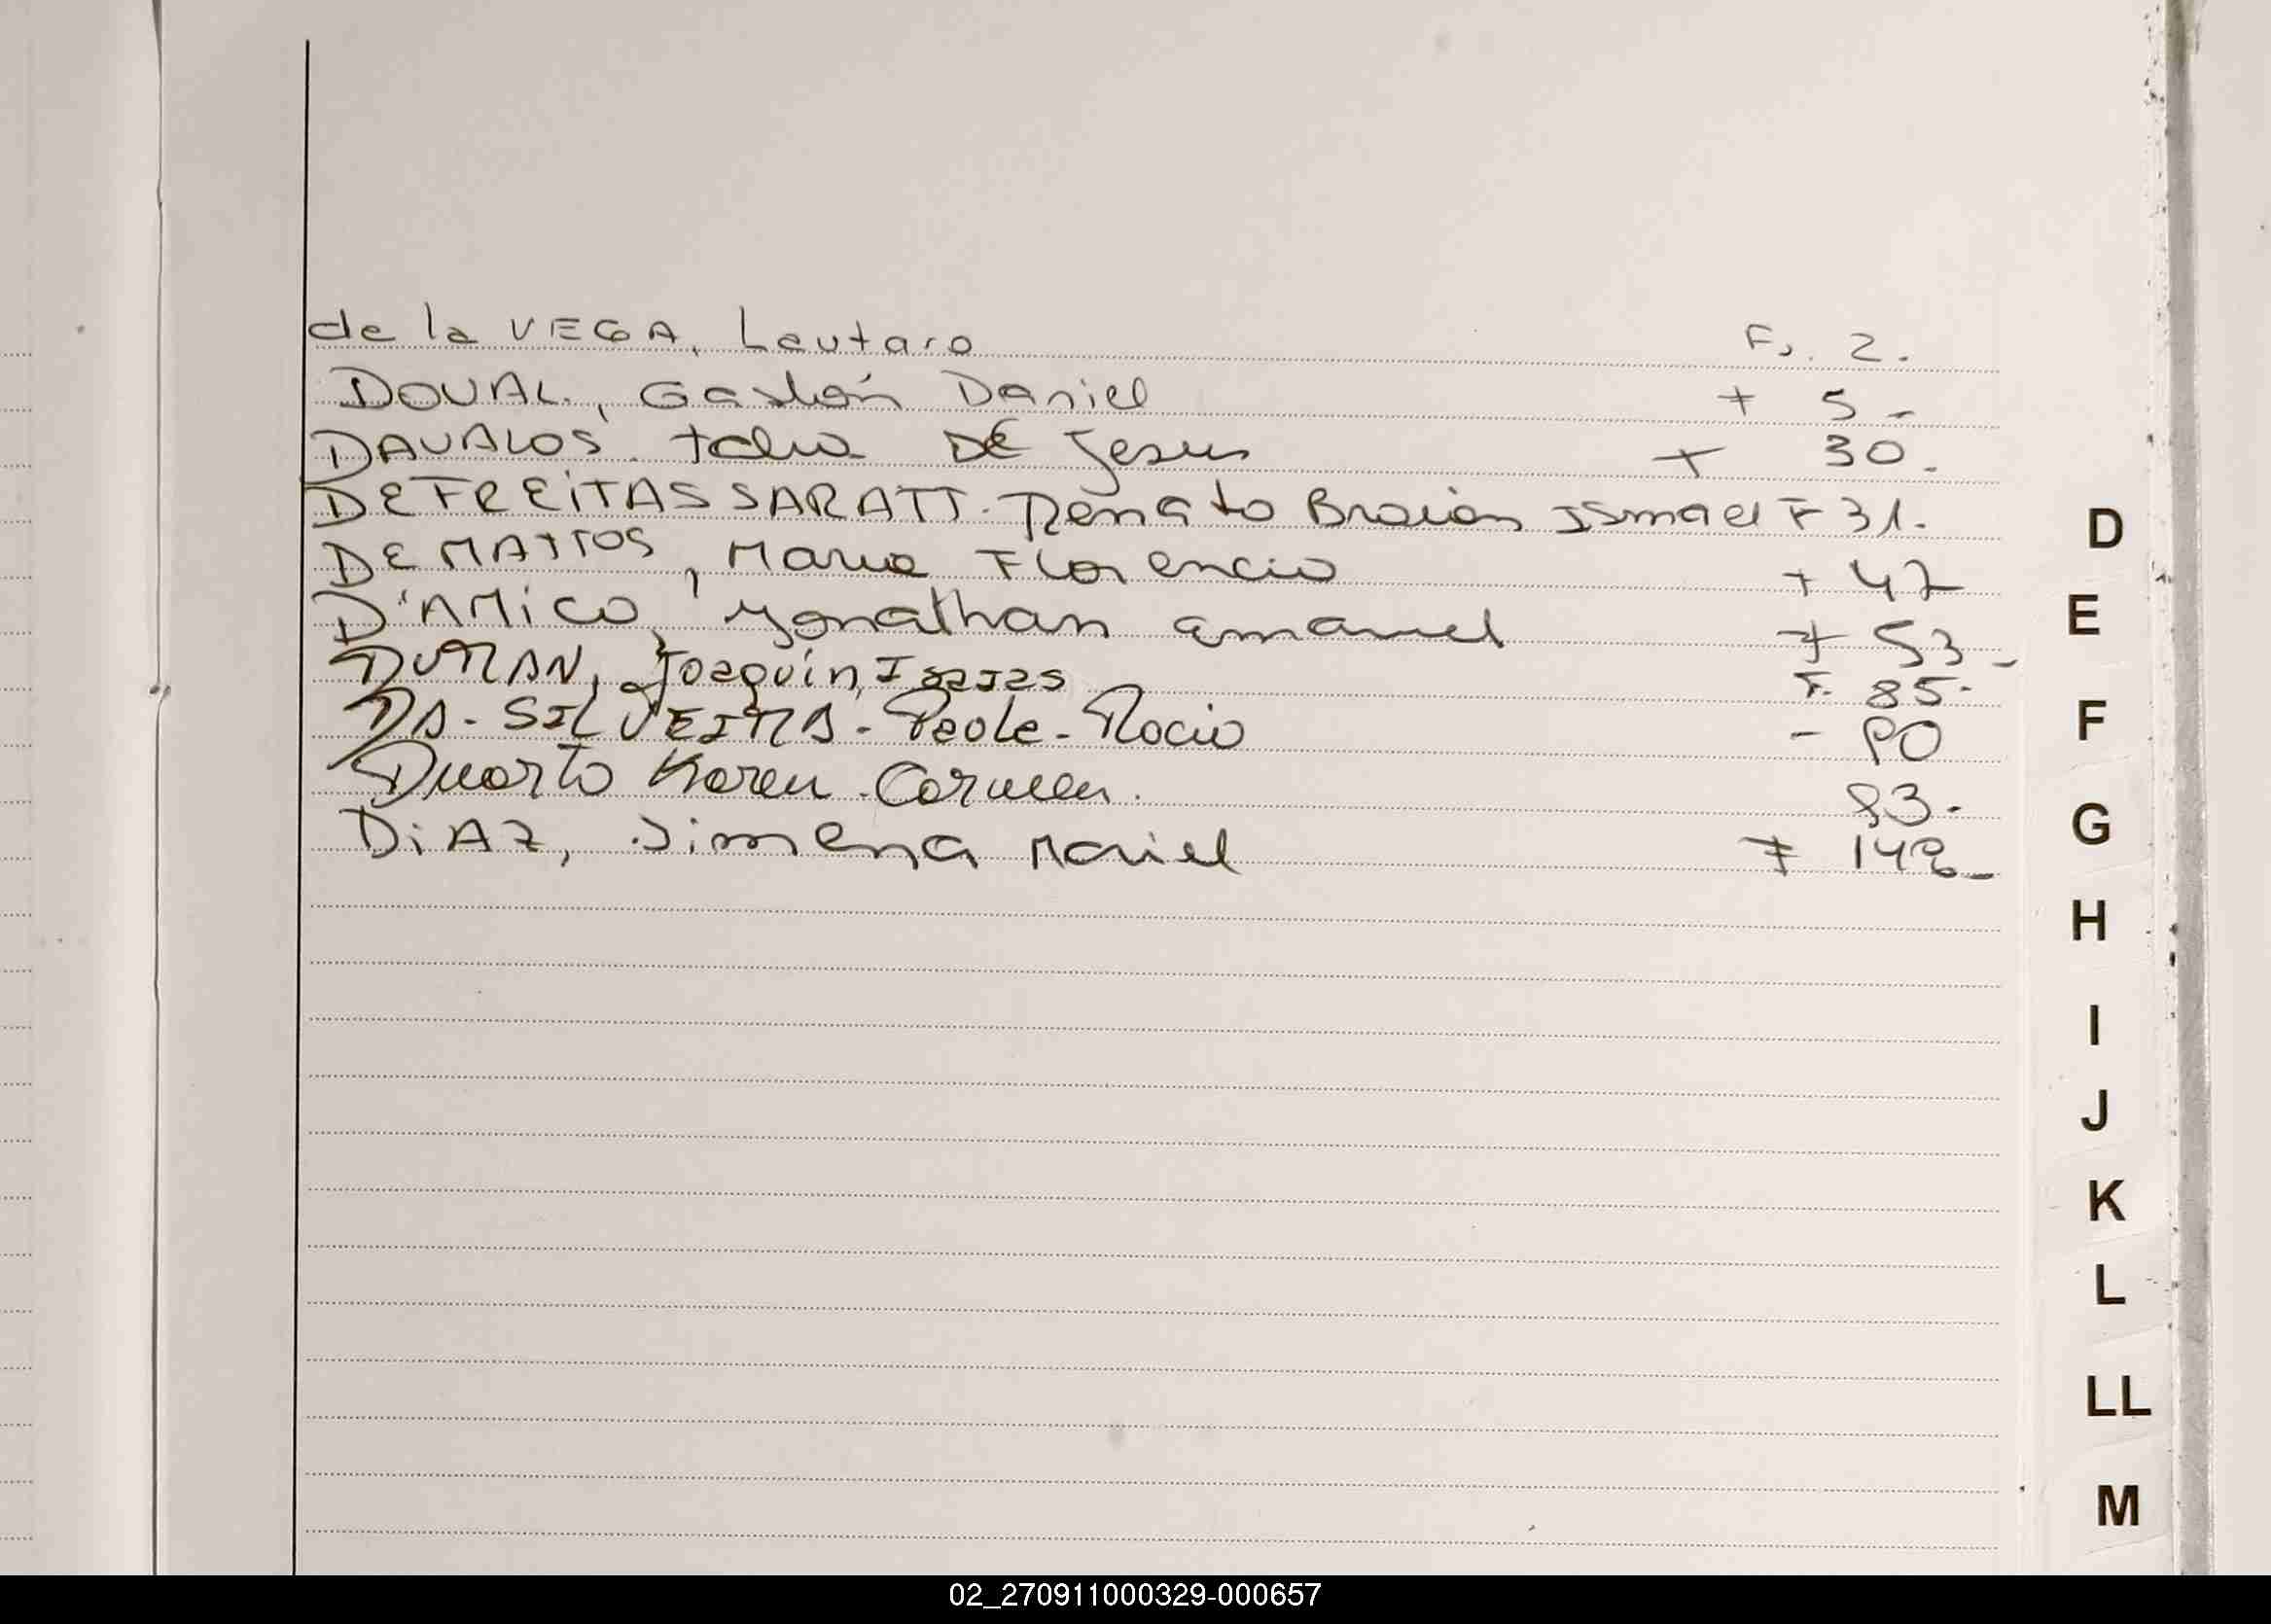 de la VEGA, Lautaro Fs. 2.
DOVAL, Gastón Daniel F 5 -
DAVALOS De Jesus F 30.
DEFREITAS SARATT. Renato Braian Ismael F 31.
DE MATTOS, Maria Florencia F 47
D'AMICO, Yonathan Emanuel F 53 -
DURAN, Joaquín, Isaias F. 85.
DA - SILVEIRA - Paola - Rocio - 90
Duarte Karen Carmen. 93.
DiAZ, Jimena Mariel F 148 -
D
E
F
G
H
I
J
K
L
LL
M
02_270911000329-000657